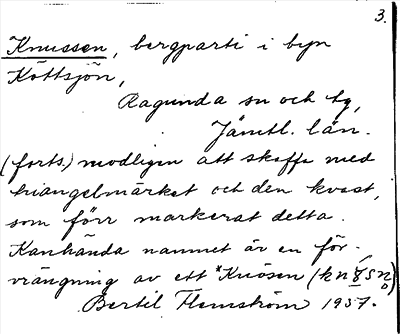 3.
Knussen, bergparti i byn
Köttsjön,
Ragunda sn och tg,
Jämtl. län.
(forts.) modligen att skaffa med
triangelmärket och den kvast,
som förr markerat detta.
Kanhända namnet är en för-
vrängning av ett *Knösen (
Bertil Flemström 1957.